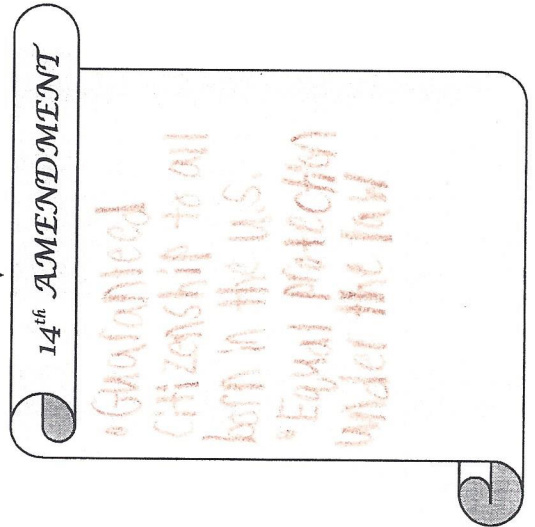 14th AMENDMENT
• Guaranteed
citizenship to all
born in the U.S.
• Equal protection
under the law